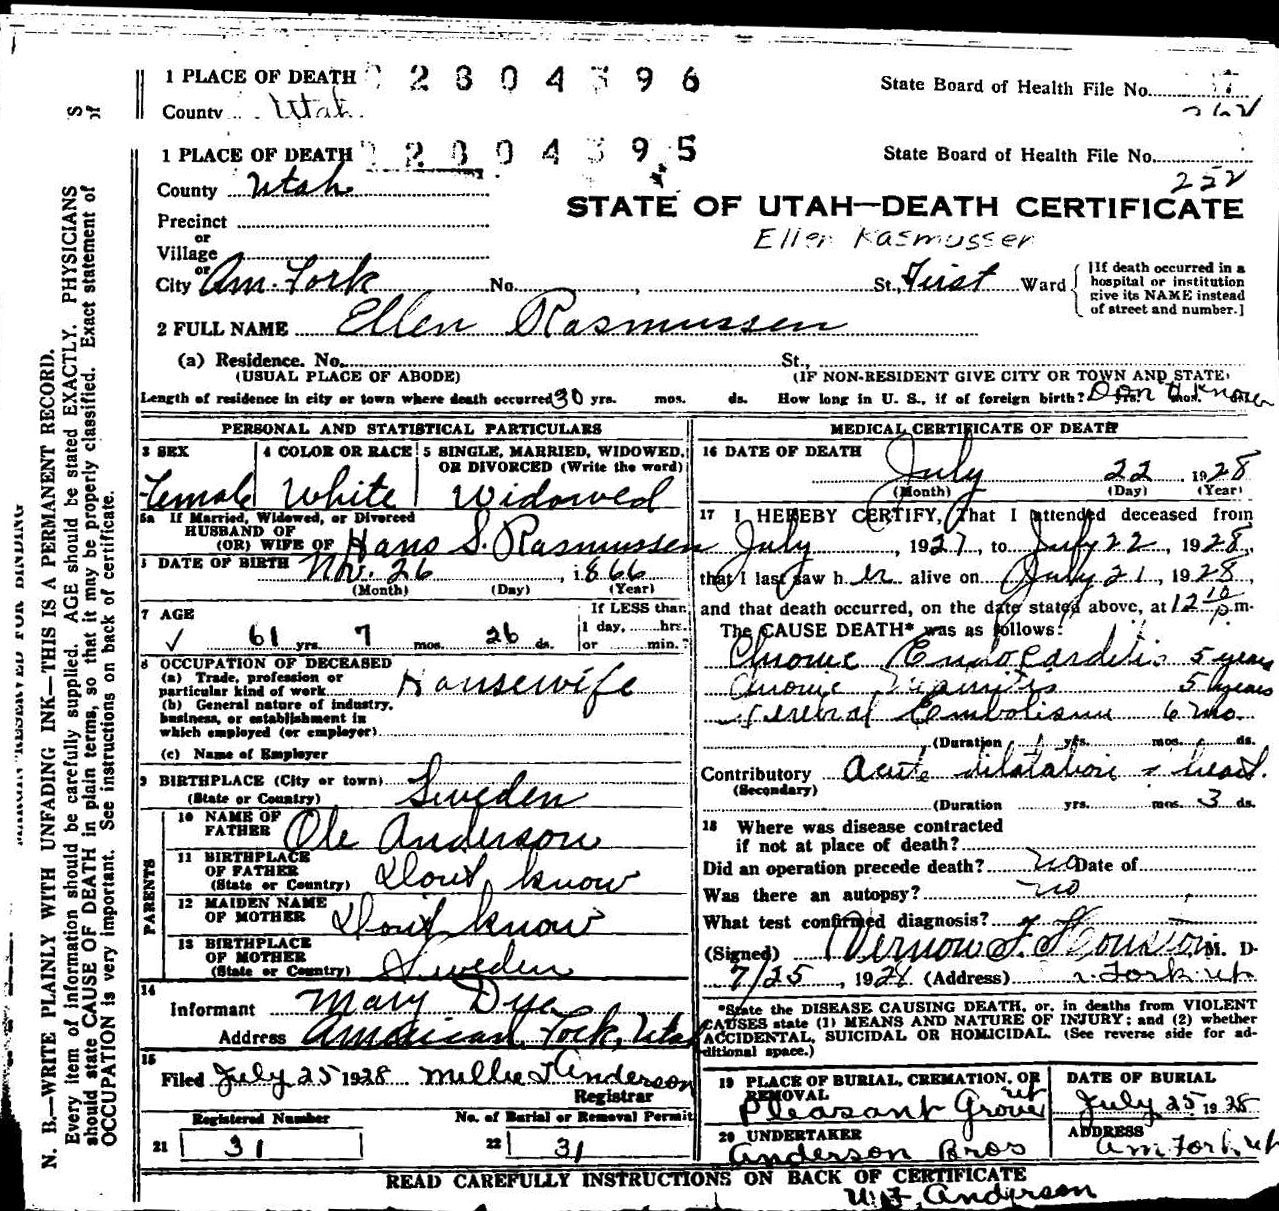 1 PLACE OF DEATH 2 8 0 4 3 9 6
State Board of Health File No.
County Utah
1 PLACE OF DEATH 2 8 0 4 3 9 5
State Board of Health File No. 252
County Utah
STATE OF UTAH—DEATH CERTIFICATE
Precinct
Ellen Rasmussen
or
Village
or
City Am. Fork No. , St., First Ward [If death occurred in a hospital or institution give its NAME instead of street and number.]
2 FULL NAME Ellen Rasmussen
(a) Residence. No. St.,
(USUAL PLACE OF ABODE) (IF NON-RESIDENT GIVE CITY OR TOWN AND STATE)
Length of residence in city or town where death occurred 30 yrs. mos. ds. How long in U. S., if of foreign birth? Don't Know yrs. mos. ds.
PERSONAL AND STATISTICAL PARTICULARS
3 SEX
Female
4 COLOR OR RACE
White
5 SINGLE, MARRIED, WIDOWED, OR DIVORCED (Write the word)
Widowed
5a If Married, Widowed, or Divorced
HUSBAND OF
(OR) WIFE OF Hans S. Rasmussen
DATE OF BIRTH Nov. 26, 1866
(Month) (Day) (Year)
7 AGE
61 yrs. 7 mos. 26 ds.
If LESS than
1 day, hrs.
or min.?
8 OCCUPATION OF DECEASED
(a) Trade, profession or
particular kind of work Housewife
(b) General nature of industry,
business, or establishment in
which employed (or employer)
(c) Name of Employer
9 BIRTHPLACE (City or town)
(State or Country) Sweden
PARENTS
10 NAME OF
FATHER Ole Anderson
11 BIRTHPLACE
OF FATHER
(State or Country) Dont know
12 MAIDEN NAME
OF MOTHER Dont know
13 BIRTHPLACE
OF MOTHER
(State or Country) Sweden
14
Informant Mary Dye
Address American Fork, Utah
15
Filed July 25 1928 Millie Anderson
Registrar
Registered Number No. of Burial or Removal Permit
21 31 22 31
MEDICAL CERTIFICATE OF DEATH
16 DATE OF DEATH
July 22 1928
(Month) (Day) (Year)
17 I HEREBY CERTIFY, That I attended deceased from
July, 1927, to July 22, 1928,
that I last saw her alive on July 21, 1928,
and that death occurred, on the date stated above, at 12 10 p. m.
The CAUSE DEATH* was as follows:
Chronic Endocarditis 5 years
Chronic 5 years
Cerebral Embolism 6 mo.
(Duration yrs. mos. ds.
Contributory Acute dilatation heart.
(Secondary)
(Duration yrs. mos. 3 ds.
18 Where was disease contracted
if not at place of death?
Did an operation precede death? no Date of
Was there an autopsy? no
What test confirmed diagnosis?
(Signed) Vernon F. Houston M. D.
7/25, 1928 (Address) Fork ut
*State the DISEASE CAUSING DEATH, or, in deaths from VIOLENT
CAUSES state (1) MEANS AND NATURE OF INJURY; and (2) whether
ACCIDENTAL, SUICIDAL OR HOMICIDAL. (See reverse side for ad-
ditional space.)
19 PLACE OF BURIAL, CREMATION, OR
REMOVAL
Pleasant Grove ut
DATE OF BURIAL
July 25 1928
20 UNDERTAKER
Anderson Bros
ADDRESS
Am Fork, ut
READ CAREFULLY INSTRUCTIONS ON BACK OF CERTIFICATE
Anderson
N. B.—WRITE PLAINLY WITH UNFADING INK—THIS IS A PERMANENT RECORD.
Every item of information should be carefully supplied. AGE should be stated EXACTLY. PHYSICIANS
should state CAUSE OF DEATH in plain terms, so that it may be properly classified. Exact statement of
OCCUPATION is very important. See instructions on back of certificate.